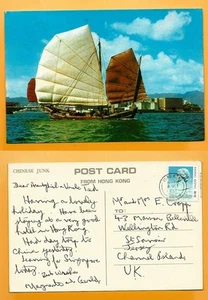 CHINESE JUNK
POST CARD
FROM HONG KONG
Dear & Uncle Ted
Having a lovely
holiday. Have been
staying at a very good
hotel in Hong Kong.
Had day trip to
China yesterday
leaving for Singapore
today.
Best wishes
TO:
Mr and Mrs E.
43 Manor
Wellington Rd
St Saviour
Jersey
Channel Islands
UK.